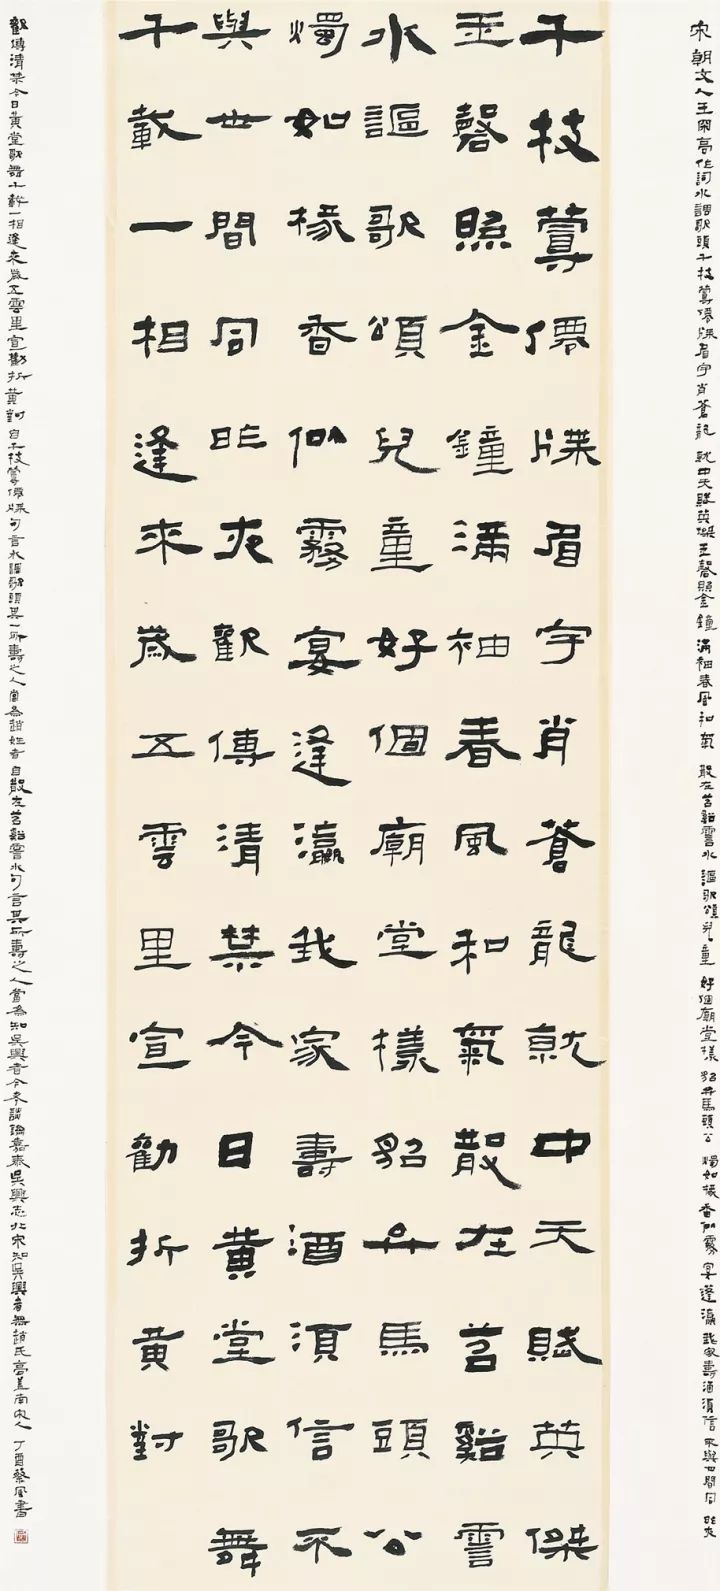 宋朝文人王罙高作詞水調歌頭千枝蕚僊牒眉宇肖蒼龍就中天賦英傑玉磬照金鐘滿袖春風和氣散在苕谿霅水謳歌頌兒童好個廟堂樣貂弁馬頭公燭如椽香似霧宴蓬瀛我家壽酒須信不與世間同昨夜
千枝蕚僊牒眉宇肖蒼龍就中天賦英傑
玉磬照金鐘滿袖春風和氣散在苕谿霅
水謳歌頌兒童好個廟堂樣貂弁馬頭公
燭如椽香似霧宴逢瀛我家壽酒須信不
與世間同昨夜觀傳清禁今日黃堂歌舞
千載一相逢來歲五雲里宣勸折黃對
觀傳清禁今日黃堂歌舞千載一相逢來歲五雲里宣勸折黃對自千枝蕚僊牒句言水調歌頭其一所壽之人當為趙姓者自散在苕谿霅水句言其所壽之人當為知吳興者今考談鑰嘉泰吳興志北宋知吳興者無趙氏高蓋南宋人丁酉蔡風書